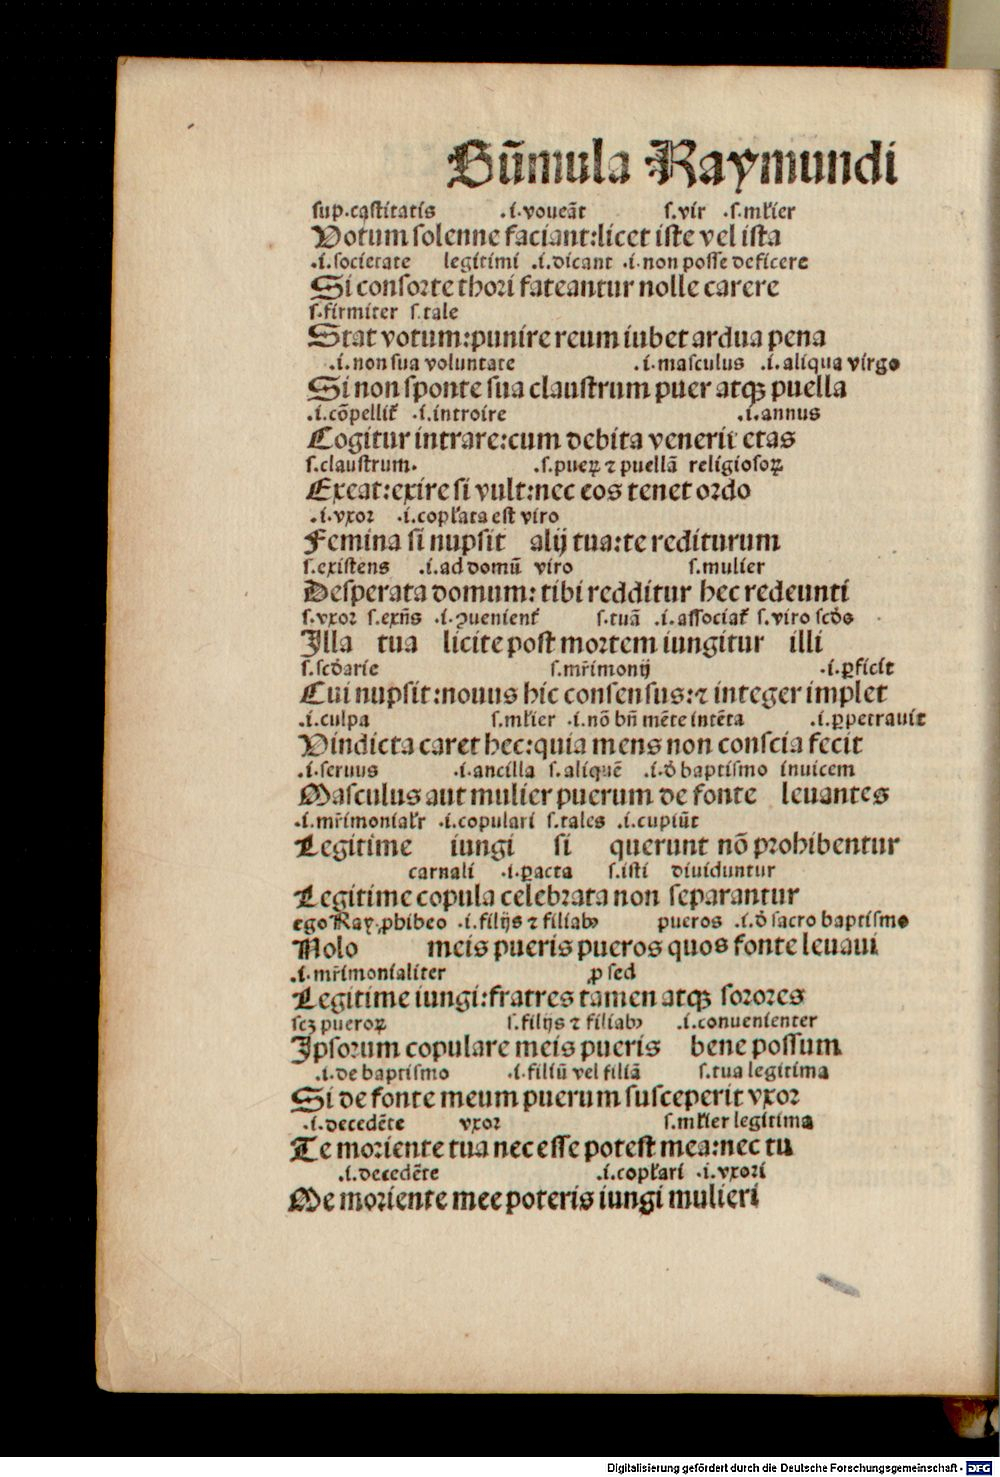 Sūmula Raymundi
sup.castitatis .i.voueāt s.vir .s.młier
Votum solenne faciant:licet iste vel ista
.i.societate legitimi .i.dicant .i.non posse deficere
Si consorte thori fateantur nolle carere
s.firmiter s.tale
Stat votum:punire reum iubet ardua pena
.i.non sua voluntate .i.masculus .i.aliqua virgo
Si non sponte sua claustrum puer atqꝫ puella
.i.cōpellit̄ .i.introire .i.annus
Cogitur intrare:cum debita venerit etas
s.claustrum. .s.pueꝝ ⁊ puellā religiosoꝝ
Exeat:exire si vult:nec eos tenet ordo
.i.vxor .i.copłata est viro
Femina si nupsit alij tua:te rediturum
s.existens .i.ad domū viro s.mulier
Desperata domum: tibi redditur hec redeunti
s.vxor s.exn̄s .i.ꝯuenient̄ s.tuā .i.associat̄ s.viro scd̄o
Illa tua licite post mortem iungitur illi
s.scd̄arie s.mr̄imonij .i.ꝑficit
Cui nupsit:nouus hic consensus:⁊ integer implet
.i.culpa s.młier .i.nō bn̄ mēte intēta .i.ꝑpetrauit
Vindicta caret hec:quia mens non conscia fecit
.i.seruus .i.ancilla s.aliquē .i.d̄ baptismo inuicem
Masculus aut mulier puerum de fonte leuantes
.i.mr̄imoniałr .i.copulari s.tales .i.cupiūt
Legitime iungi si querunt nō prohibentur
carnali .i.ꝑacta s.isti diuiduntur
Legitime copula celebrata non separantur
ego Ray.ꝓhibeo .i.filijs ⁊ filiabꝰ pueros .i.d̄ sacro baptismo
Nolo meis pueris pueros quos fonte leuaui
.i.mr̄imonialiter ꝓ sed
Legitime iungi:fratres tamen atqꝫ sorores
scꝫ pueroꝝ s.filijs ⁊ filiabꝰ .i.conuenienter
Ipsorum copulare meis pueris bene possum
.i.de baptismo .i.filiū vel filiā s.tua legitima
Si de fonte meum puerum susceperit vxor
.i.decedēte vxor s.młier legitima
Te moriente tua nec esse potest mea:nec tu
.i.decedēte .i.copłari .i.vxori
Me moriente mee poteris iungi mulieri
Digitalisierung gefördert durch die Deutsche Forschungsgemeinschaft - DFG